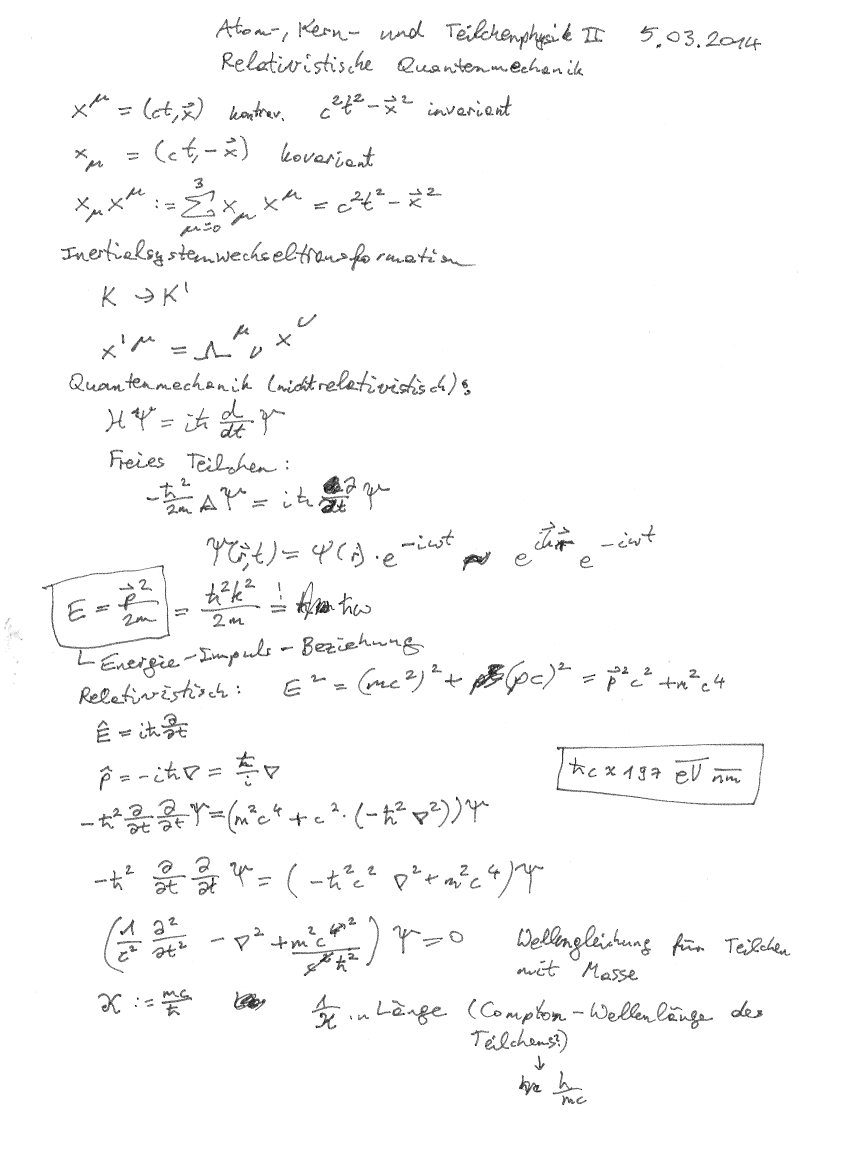 Atom-, Kern- und Teilchenphysik II 5.03.2014
Relativistische Quantenmechanik
x^μ = (ct, x⃗) kontrav. c²t² - x⃗² invariant
x_μ = (ct, -x⃗) kovariant
x_μ x^μ := Σ_{μ=0}^{3} x_μ x^μ = c²t² - x⃗²
Inertialsystemwechseltransformation
K → K'
x'^μ = Λ^μ_ν x^ν
Quantenmechanik (nichtrelativistisch):
HΨ = iħ d/dt Ψ
Freies Teilchen:
-ħ²/2m ΔΨ = iħ ∂/∂t Ψ
Ψ(r⃗,t) = Ψ(r⃗) · e^{-iωt} ~ e^{ik⃗r⃗} e^{-iωt}
E = p⃗²/2m = ħ²k²/2m =! ħω
Energie-Impuls-Beziehung
Relativistisch: E² = (mc²)² + (pc)² = p⃗²c² + m²c⁴
Ê = iħ ∂/∂t
p̂ = -iħ∇ = ħ/i ∇
ħc ≈ 197 eV nm
-ħ² ∂/∂t ∂/∂t Ψ = (m²c⁴ + c² · (-ħ²∇²))Ψ
-ħ² ∂/∂t ∂/∂t Ψ = (-ħ²c² ∇² + m²c⁴)Ψ
(1/c² ∂²/∂t² - ∇² + m²c²/ħ²) Ψ = 0 Wellengleichung für Teilchen
mit Masse
ϰ := mc/ħ 1/ϰ in Länge (Compton-Wellenlänge des
Teilchens?)
↓
h/mc